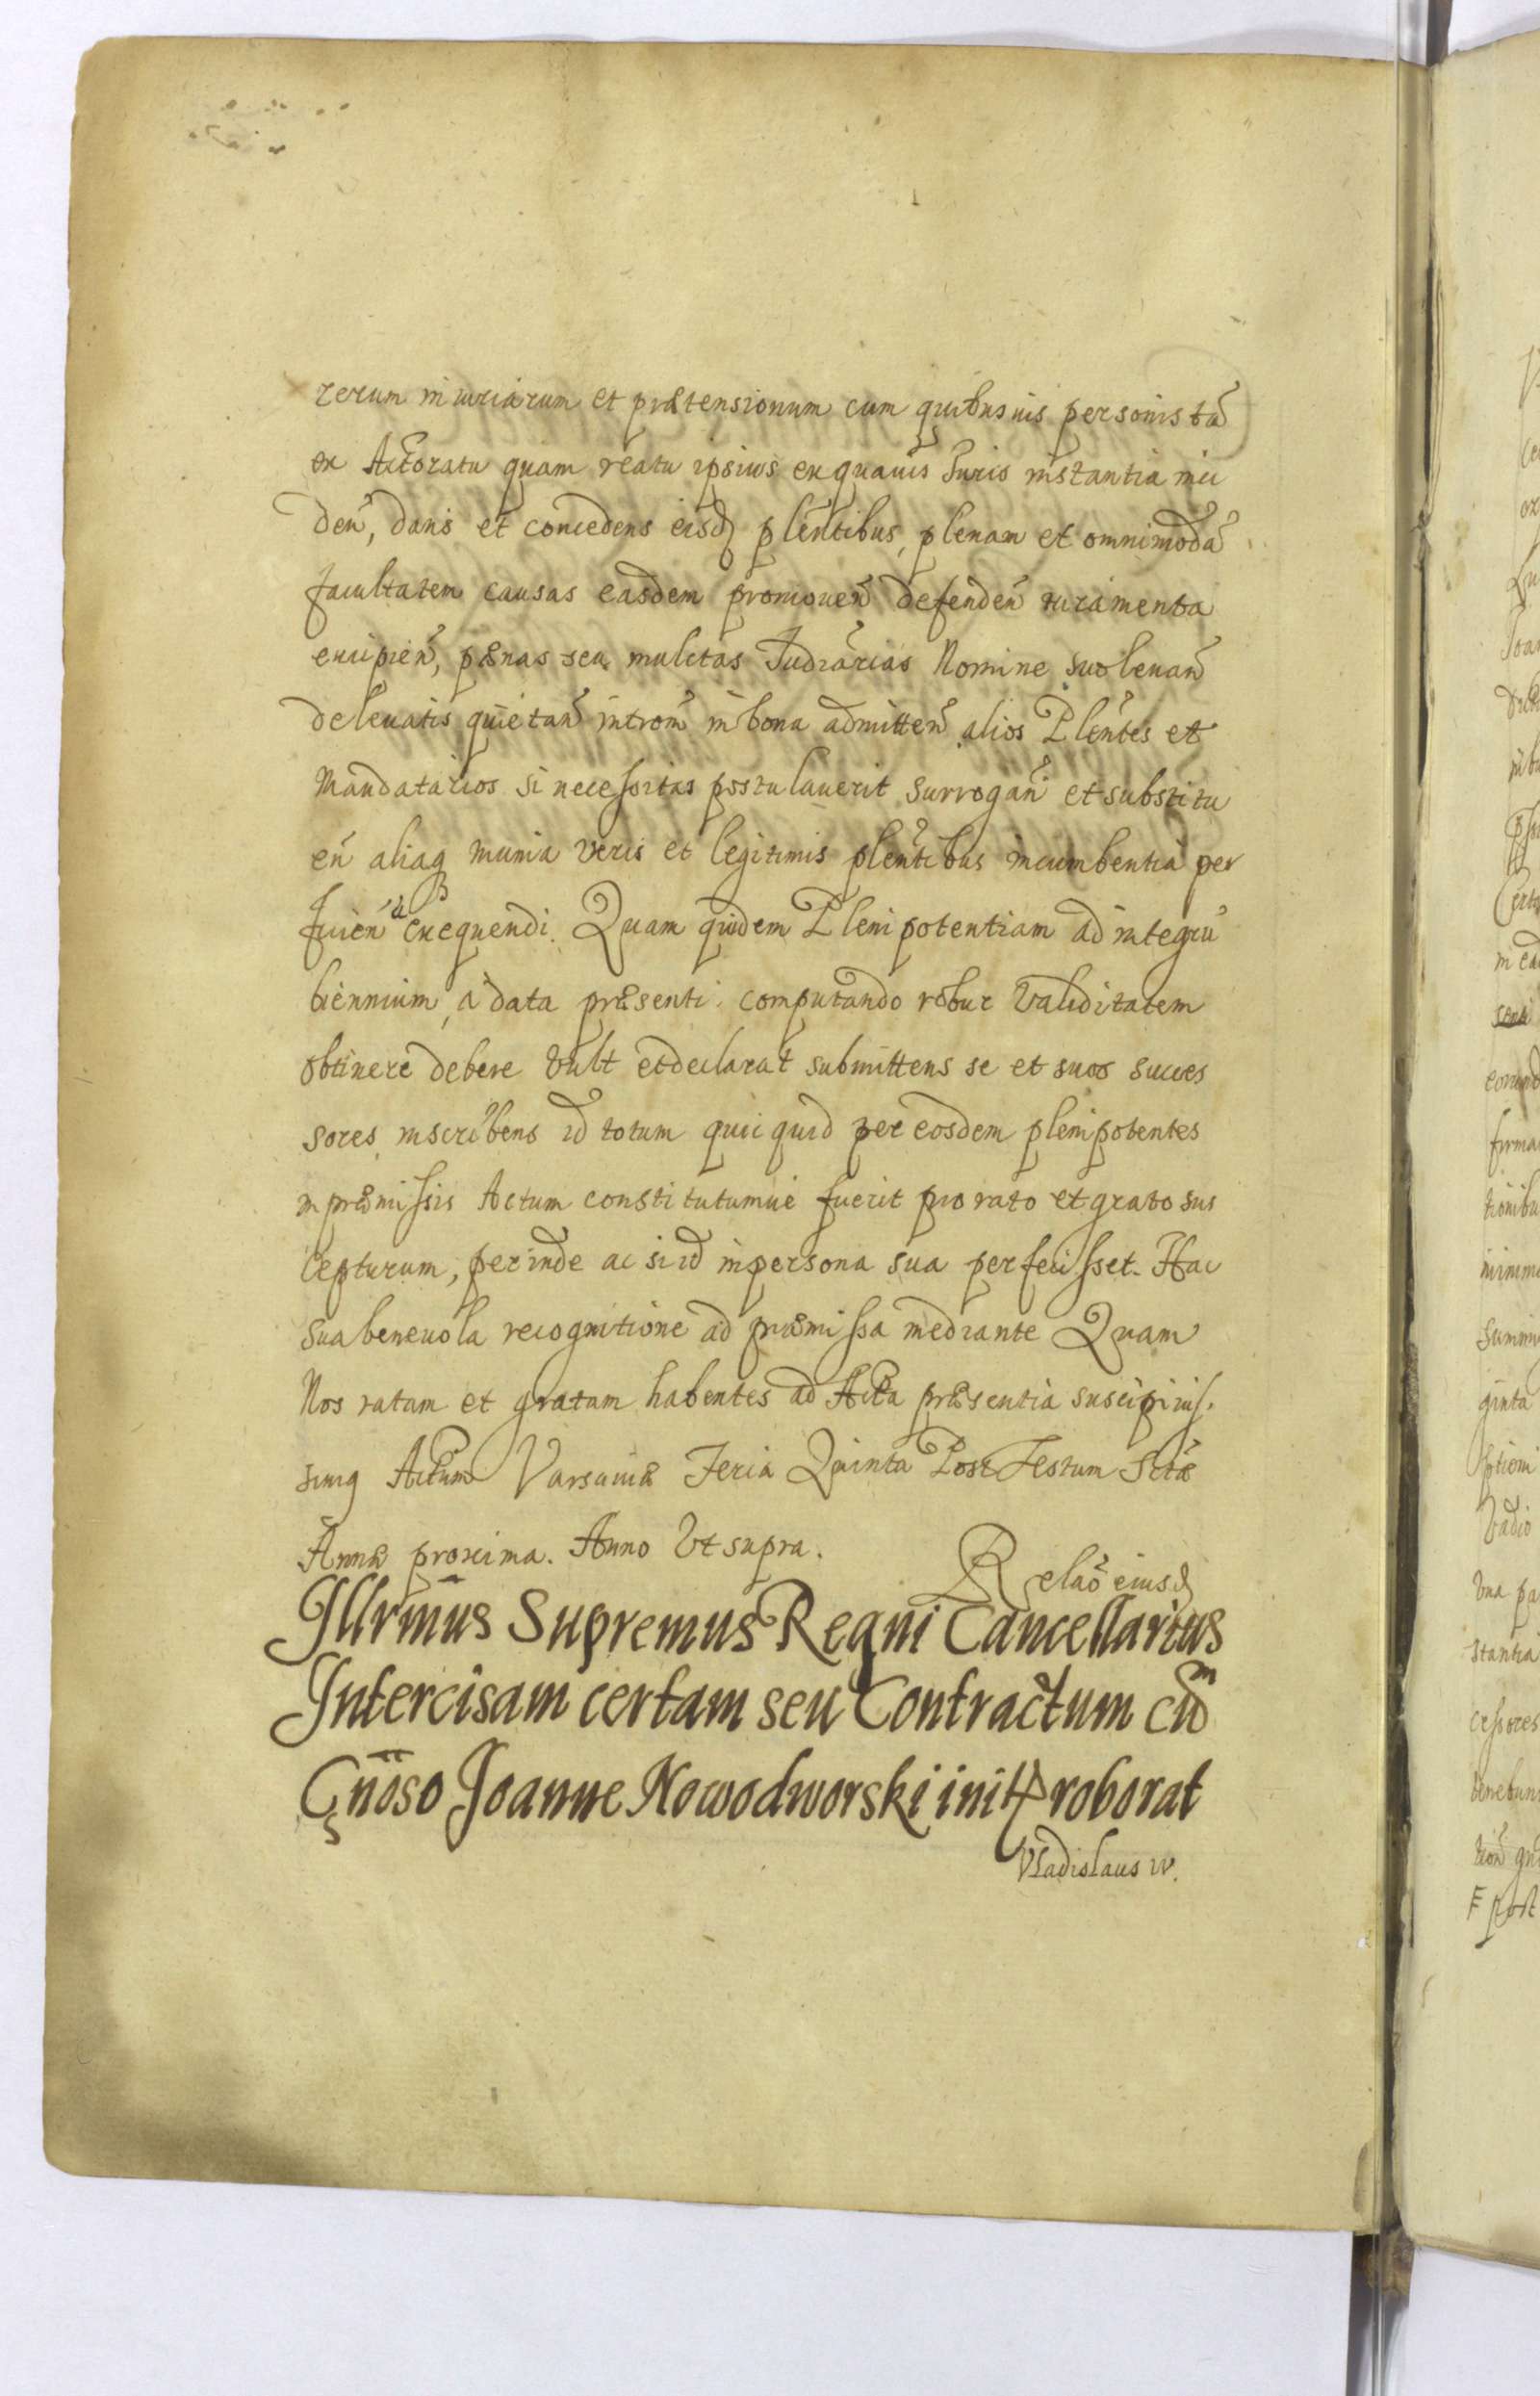 rerum iniuriarum et prætensionum cum quibusuis personis tã
ex Actoratu quam reatu ipsius exquauis Iuris instantia inci
deñ, dans et concedens eisd plentibus, plenam et omnimodã
facultatem causas easdem promoueñ defendeñ iuramenta
excipieñ, pænas seu mulctas Iudiarias Nomine suo leuañ
de leuatis quietañ introm̃ in bona admitteñ alios Plentes et
Mandatarios si necessitas postulauerit surrogañ et substitu
eñ aliaq munia veris et legitimis plentibus incumbentia per
ficieñ & exequendi. Quam quidem Plenipotentiam ad integrũ
biennium, à data præsenti computando robur validitatem
obtinere debere vult et declarat submittens se et suos succes
sores inscribens id totum quicquid per eosdem plenipotentes
in præmissis Actum constitutumue fuerit pro rato et grato sus
cepturum, perinde ac si id in persona sua perfecisset. Hac
sua beneuola recognitione ad præmissa mediante Quam
Nos ratam et gratam habentes ad Acta præsentia suscipius.
simq Actum Varsauiæ Feria Quinta Post Festum Sctæ
Annæ proxima. Anno Vt supra.
Relaõ eiusd
Illrmus Supremus Regni Cancellarius
Intercisam certam seu Contractum cũ
Gñoso Joanne Nowodworski init roborat
Vladislaus IV.